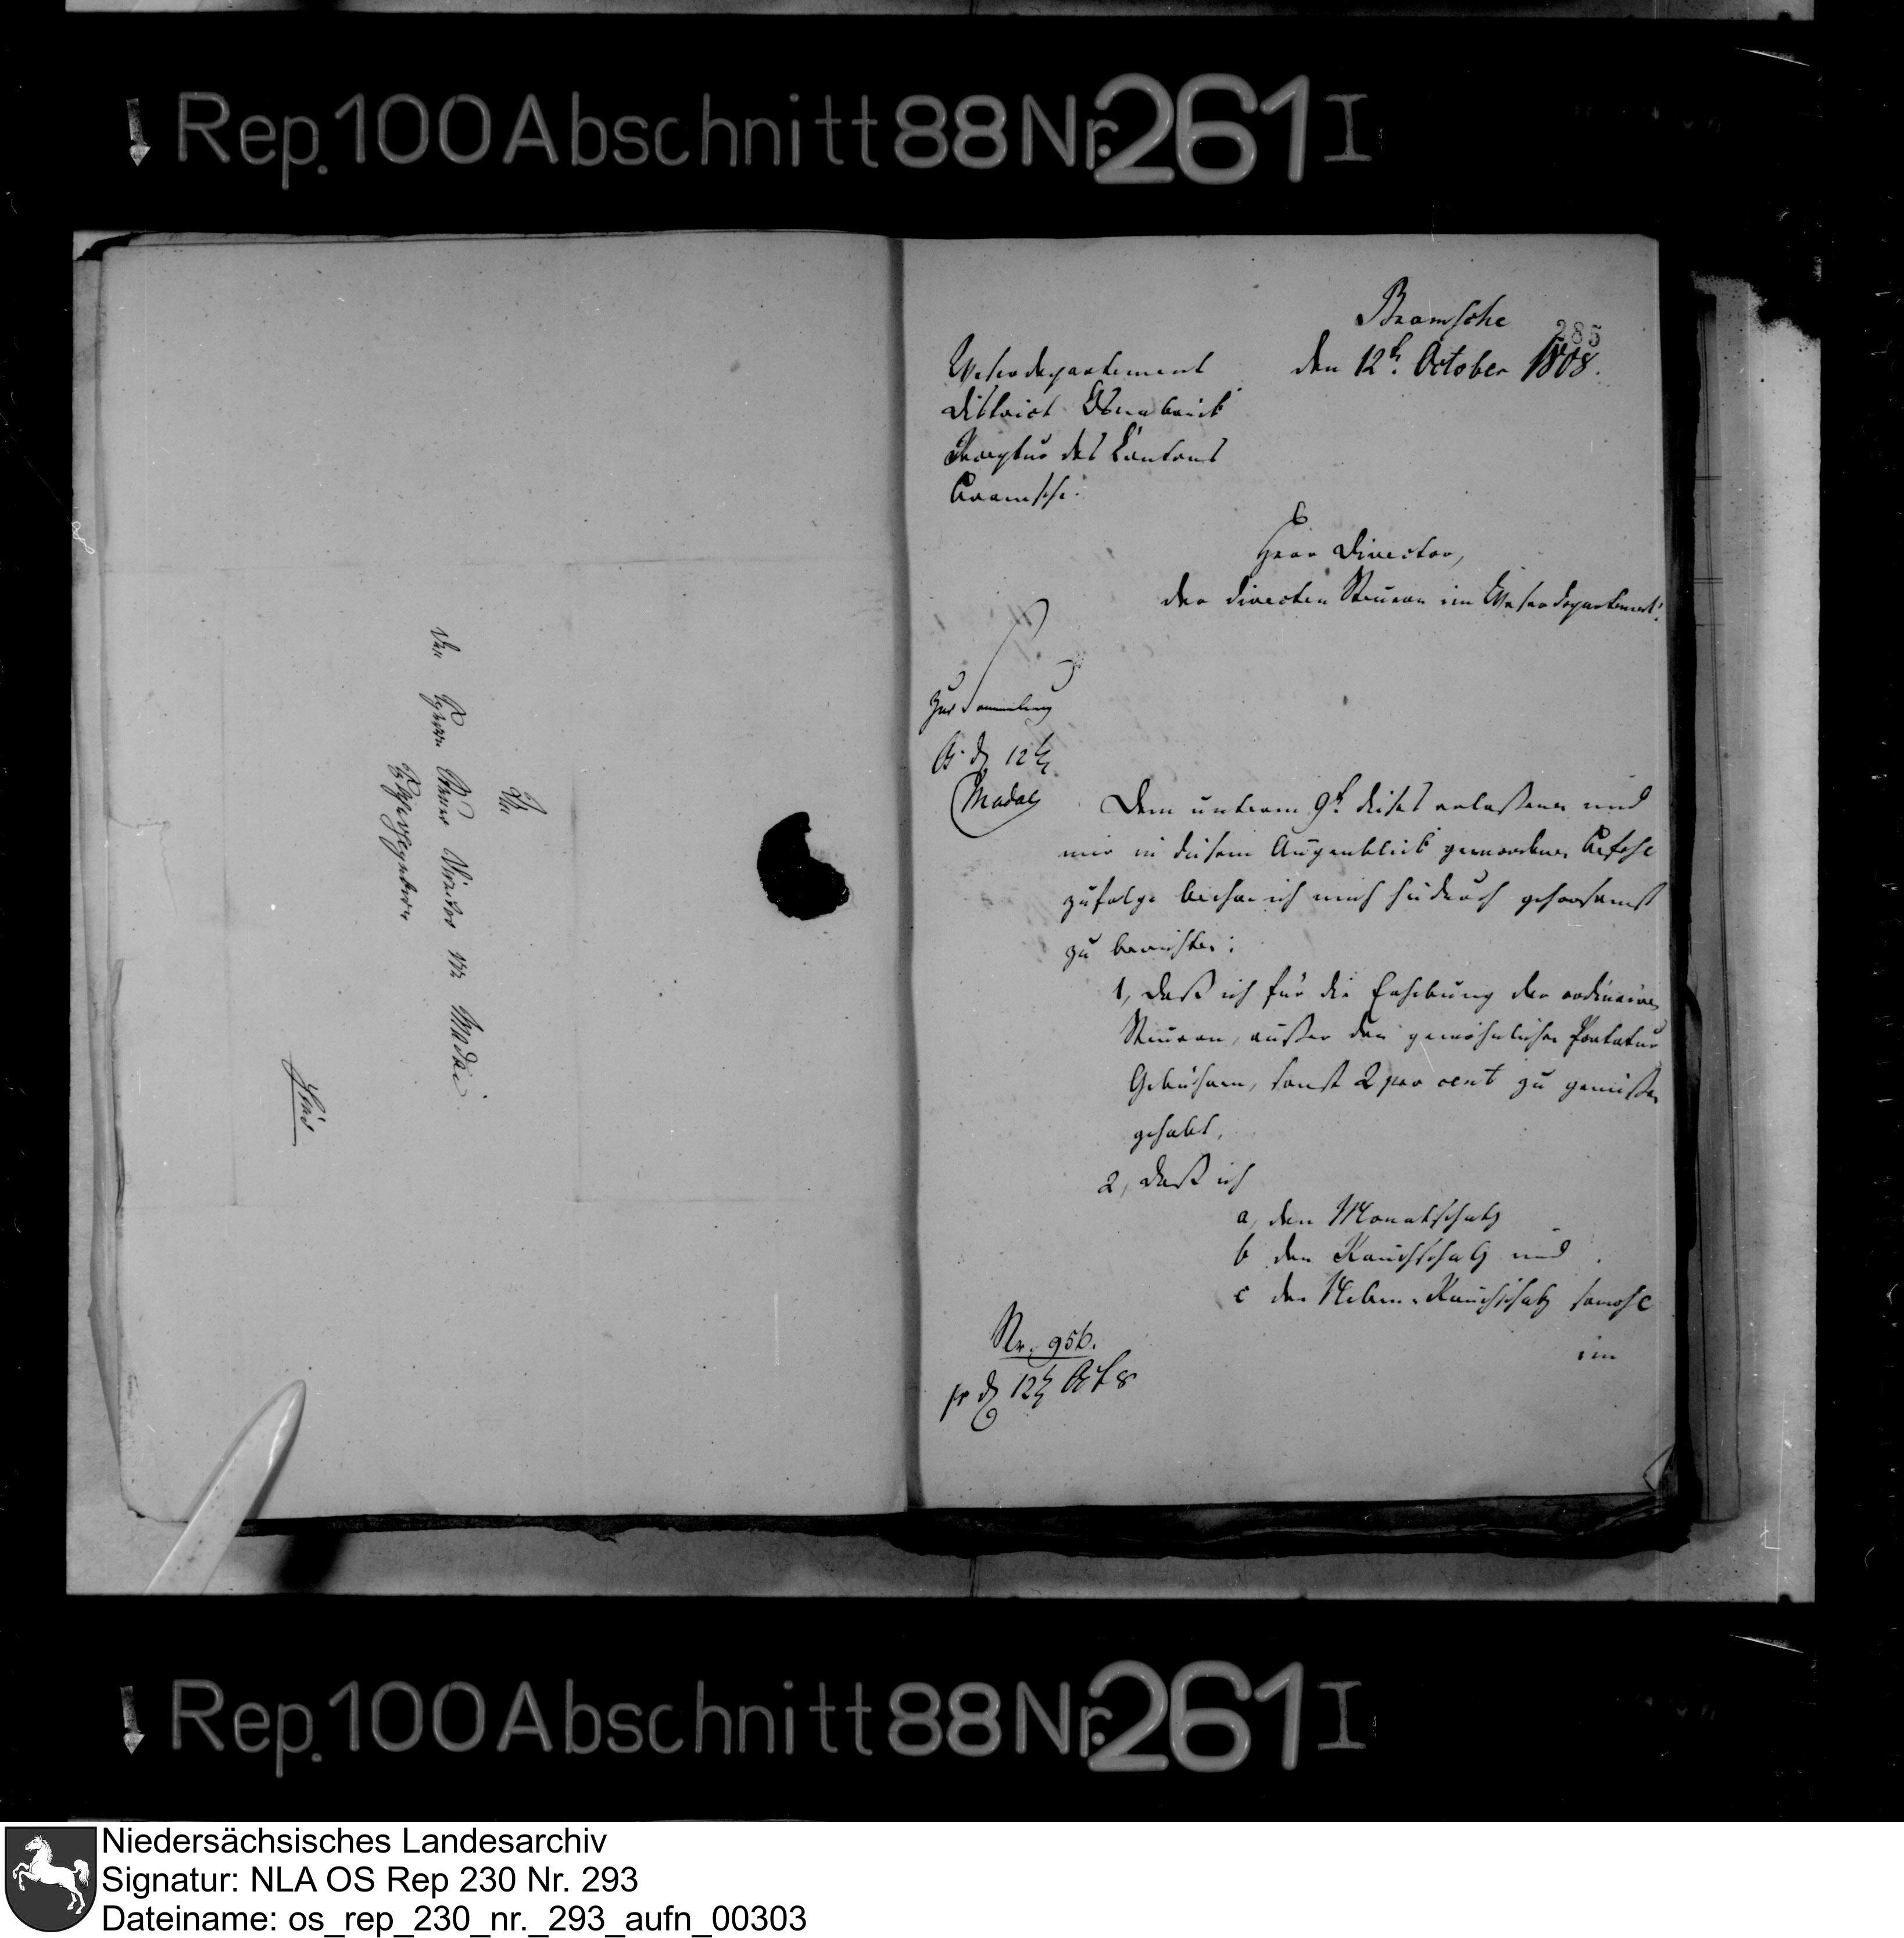 Rep. 100 Abschnitt 88 Nr. 261 I
An
den Herrn Steuer Director von
Hochwohlgeboren
frei
285
Bramsche
den 12t. October 1808.
Weserdepartement
District Osnabrück
Receptur des Cantons
Bramsche.
Herr Director,
der directen Steuern im Weserdepartement!
zur Sammlung
O. d. 12
Dem unterm 9t. dieses erlaßenen und
mir in diesem Augenblick gewordenen Befehl
zufolge beehre ich mich hiedurch gehorsamst
zu berichten:
1, daß ich für die Erhebung der ordinairen
Steuern, außer den gewöhnlichen
Gebühren, sonst 2 pro cent zu genießen
gehabt,
2, daß ich
a, den Monatschatz
b den Rauchschatz und
c den Neben-Rauchschatz sowohl
im
Nr. 956.
pr d. 12 Oct 8
Rep. 100 Abschnitt 88 Nr. 261 I
Niedersächsisches Landesarchiv
Signatur: NLA OS Rep 230 Nr. 293
Dateiname: os_rep_230_nr._293_aufn_00303